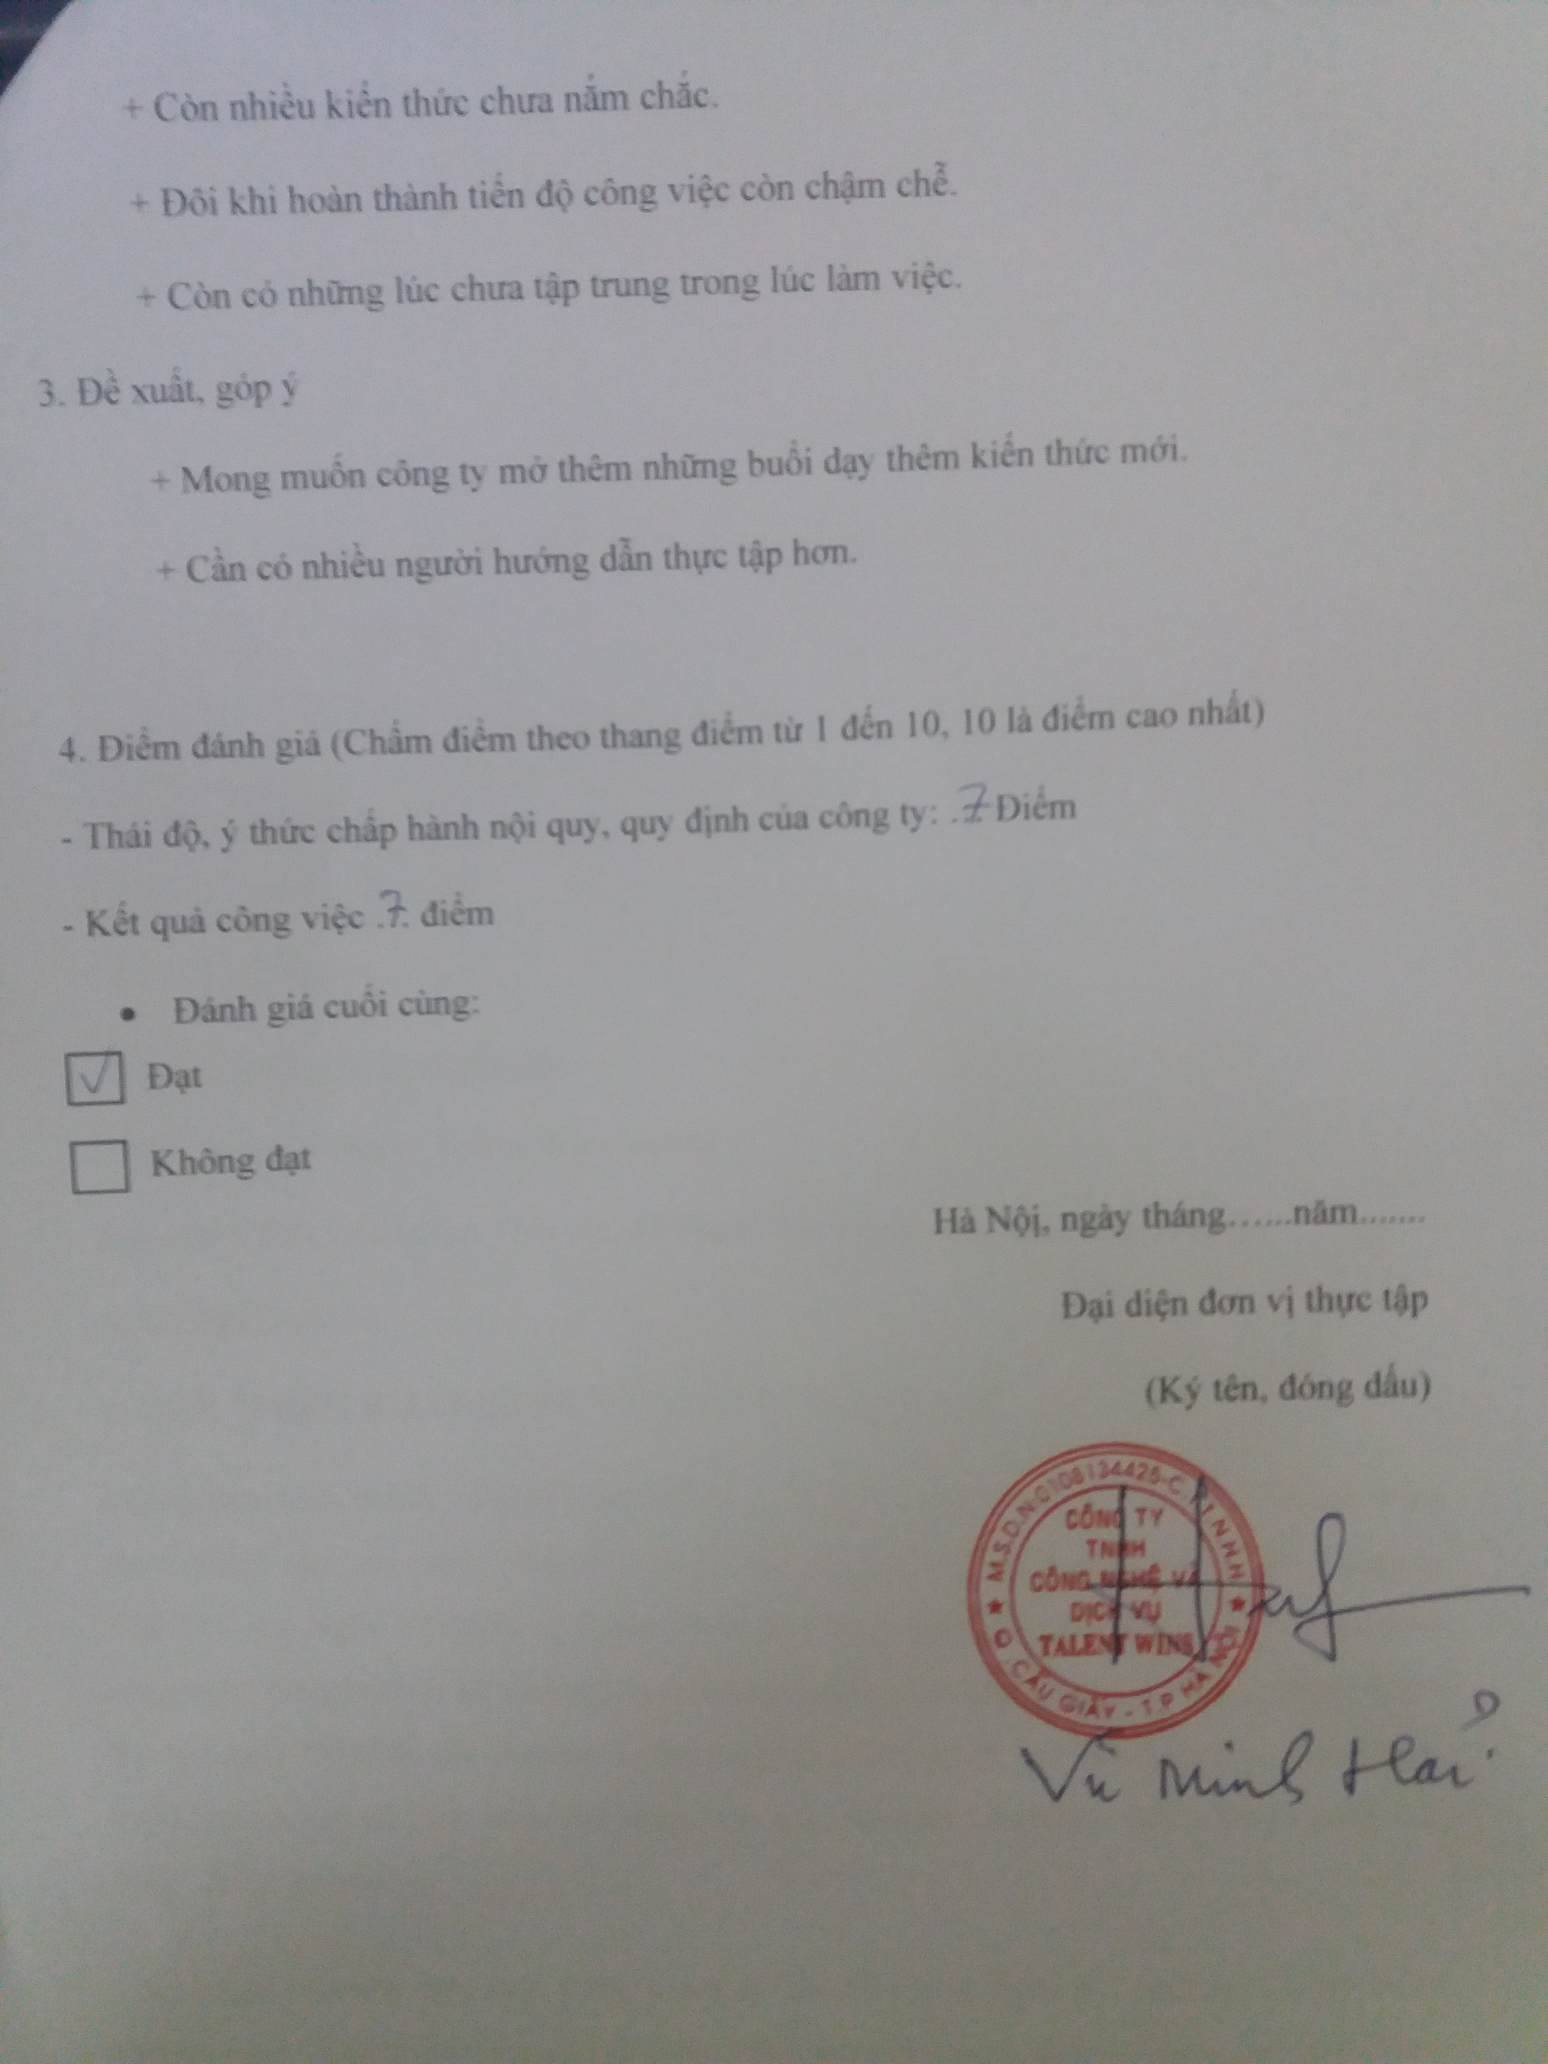 + Còn nhiều kiến thức chưa nắm chắc.
+ Đôi khi hoàn thành tiến độ công việc còn chậm chễ.
+ Còn có những lúc chưa tập trung trong lúc làm việc.
3. Đề xuất, góp ý
+ Mong muốn công ty mở thêm những buổi dạy thêm kiến thức mới.
+ Cần có nhiều người hướng dẫn thực tập hơn.
4. Điểm đánh giá (Chấm điểm theo thang điểm từ 1 đến 10, 10 là điểm cao nhất)
- Thái độ, ý thức chấp hành nội quy, quy định của công ty: .7 Điểm
- Kết quả công việc .7. điểm
• Đánh giá cuối cùng:
√ Đạt
Không đạt
Hà Nội, ngày tháng.......năm.......
Đại diện đơn vị thực tập
(Ký tên, đóng dấu)
M.S.D.N:0108134425-C.T.T.N.H.H
CÔNG TY
TNHH
CÔNG NGHỆ VÀ
DỊCH VỤ
TALENT WINS
Q. CẦU GIẤY - T.P HÀ NỘI
Vũ Minh Hải